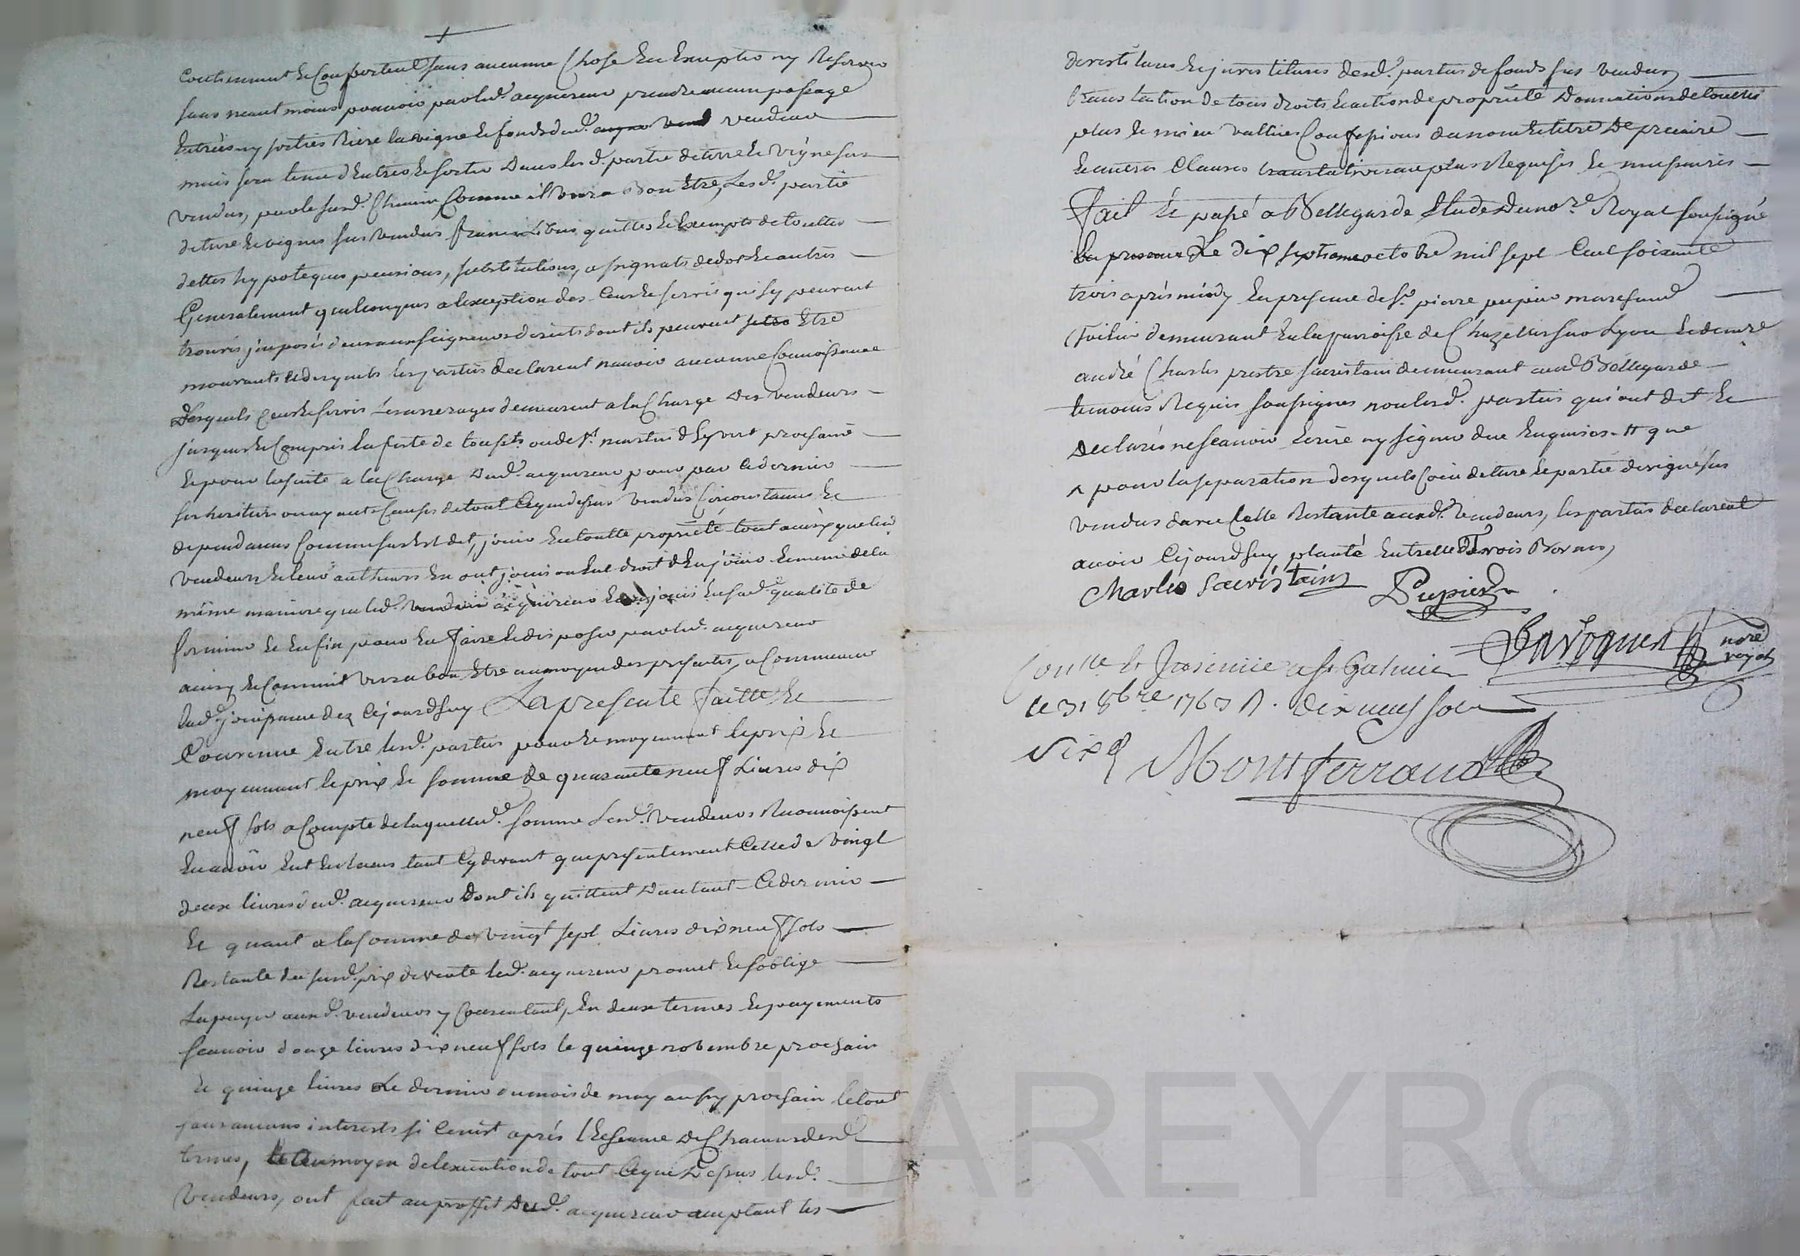 contiennent et comportent sans aucunne chose en exception ny reserver
sans neant moins pouvoir par led. acquereur prendre aucun passage
entrées ny sorties riere la vigne et fonds dud. vendeur
mais sera tenu d'entrer et sortir dans les d. partie de terre et vigne sus
vendus, par le susd. chemin comme il verra bon etre, lesd. partie
de terre et vignes sus vendus francs libres quittes et exempts de touttes
dettes hypoteques pensions, substitutions, assignats de dot et autres
generalement quelconques a l'exception des cens et servis qui s'y peuvent
trouvés imposés deus aux seigneurs directs dont ils peuvent etre
mouvants et desquels les parties declarent n'avoir aucunne connoissance
desquels cens et servis les arrerages demeurent a la charge des vendeurs
jusques et compris la feste de toussts ou de st. martin d'hyvert prochaine
et pour la suitte a la charge dud. acquereur pour par ce dernier
ses heritiers ou ayants causes de tout ce que dessus vendus circonstances et
dependances comme sus est dit, jouir en toutte proprieté tout ainsy que lesd.
vendeurs et leurs autheurs en ont joui ou eut droit d'en jouir et meme de la
même maniere que led. acquereur en a joui en sad. qualité de
fermier et enfin pour en faire et disposer par led. acquereur
ainsy et comment verra bon etre au moyen des presentes, a commencer
lad. jouissance dez ce jourd'huy La presente faitte et
convenue entre lesd. parties pour et moyennant le prix et
moyennant le prix et somme de quarante neuf livres dix
neuf sols a compte de laquelle d. somme lesd. vendeurs reconnoissent
en avoir eut et receus tant cy devant que presentement celle de vingt
deux livres dud. acquereur dont ils quittent d'autant ce dernier
et quant a la somme de vingt sept livres dix neuf sols
restante du susd. prix de vente led. acquereur promet et s'oblige
la payer auxd. vendeurs y consentant, en deux termes et payements
scavoir douze livres dix neuf sols le quinze novembre prochain
et quinze livres le dernier du mois de may aussy prochain le tout
sans aucuns interests si ce n'est après l'echeance de chacun desd.
termes, et au moyen de l'execution de tout ce que dessus lesd.
vendeurs, ont fait au proffit dud. acquereur acceptant les
devestitures et investitures desd. parties de fonds sus vendus
translation de tous droits et action de proprieté donnations de touttes
plus et mieux vallues confessions du nom et titre de precaire
et autres clauses translatives au plus requises et necessaires
Fait et passé a Bellegarde etude du nore. Royal soussigné
le dix septieme octobre mil sept cent soixante
trois après midy en presence de sr. pierre pupier marchand
toilier demeurant en la parroisse de Chazelles sur Lyon et de mre
andré Charles prestre sacristain demeurant aud. Bellegarde
temoins requis soussignes non lesd. parties qui ont dit et
declarés ne scavoir ecrire ny signer due enquises. # que
^ pour la separation desquels coin de terre et partie de vigne sus
vendus davec celle restante auxd. vendeurs, les parties declarent
avoir ce jourd'huy planté entr'elle trois bornes,
Charles sacristain Pupier
nore royal
Conlle et Insinué a St Galmier
le 31 8bre 1763 R. dix neuf sols
six d Montferrand
CHAREYRON